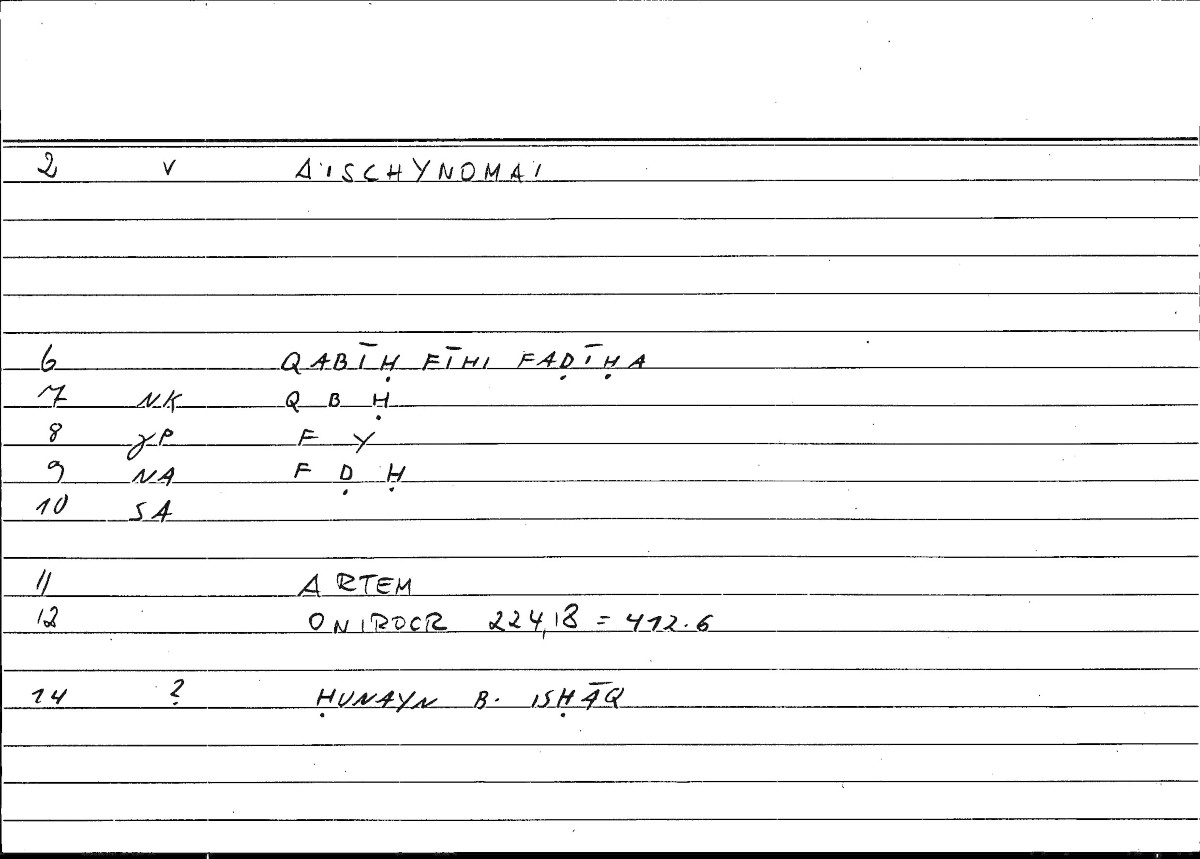 2 V AISCHYNOMAI
6 QABĪḤ FĪHI FAḌĪḤA
7 NK Q B Ḥ
8 γP F Y
9 NA F Ḍ Ḥ
10 SA
11 ARTEM
12 ONIROCR 224,18 = 412.6
14 ? ḤUNAYN B. ISḤĀQ